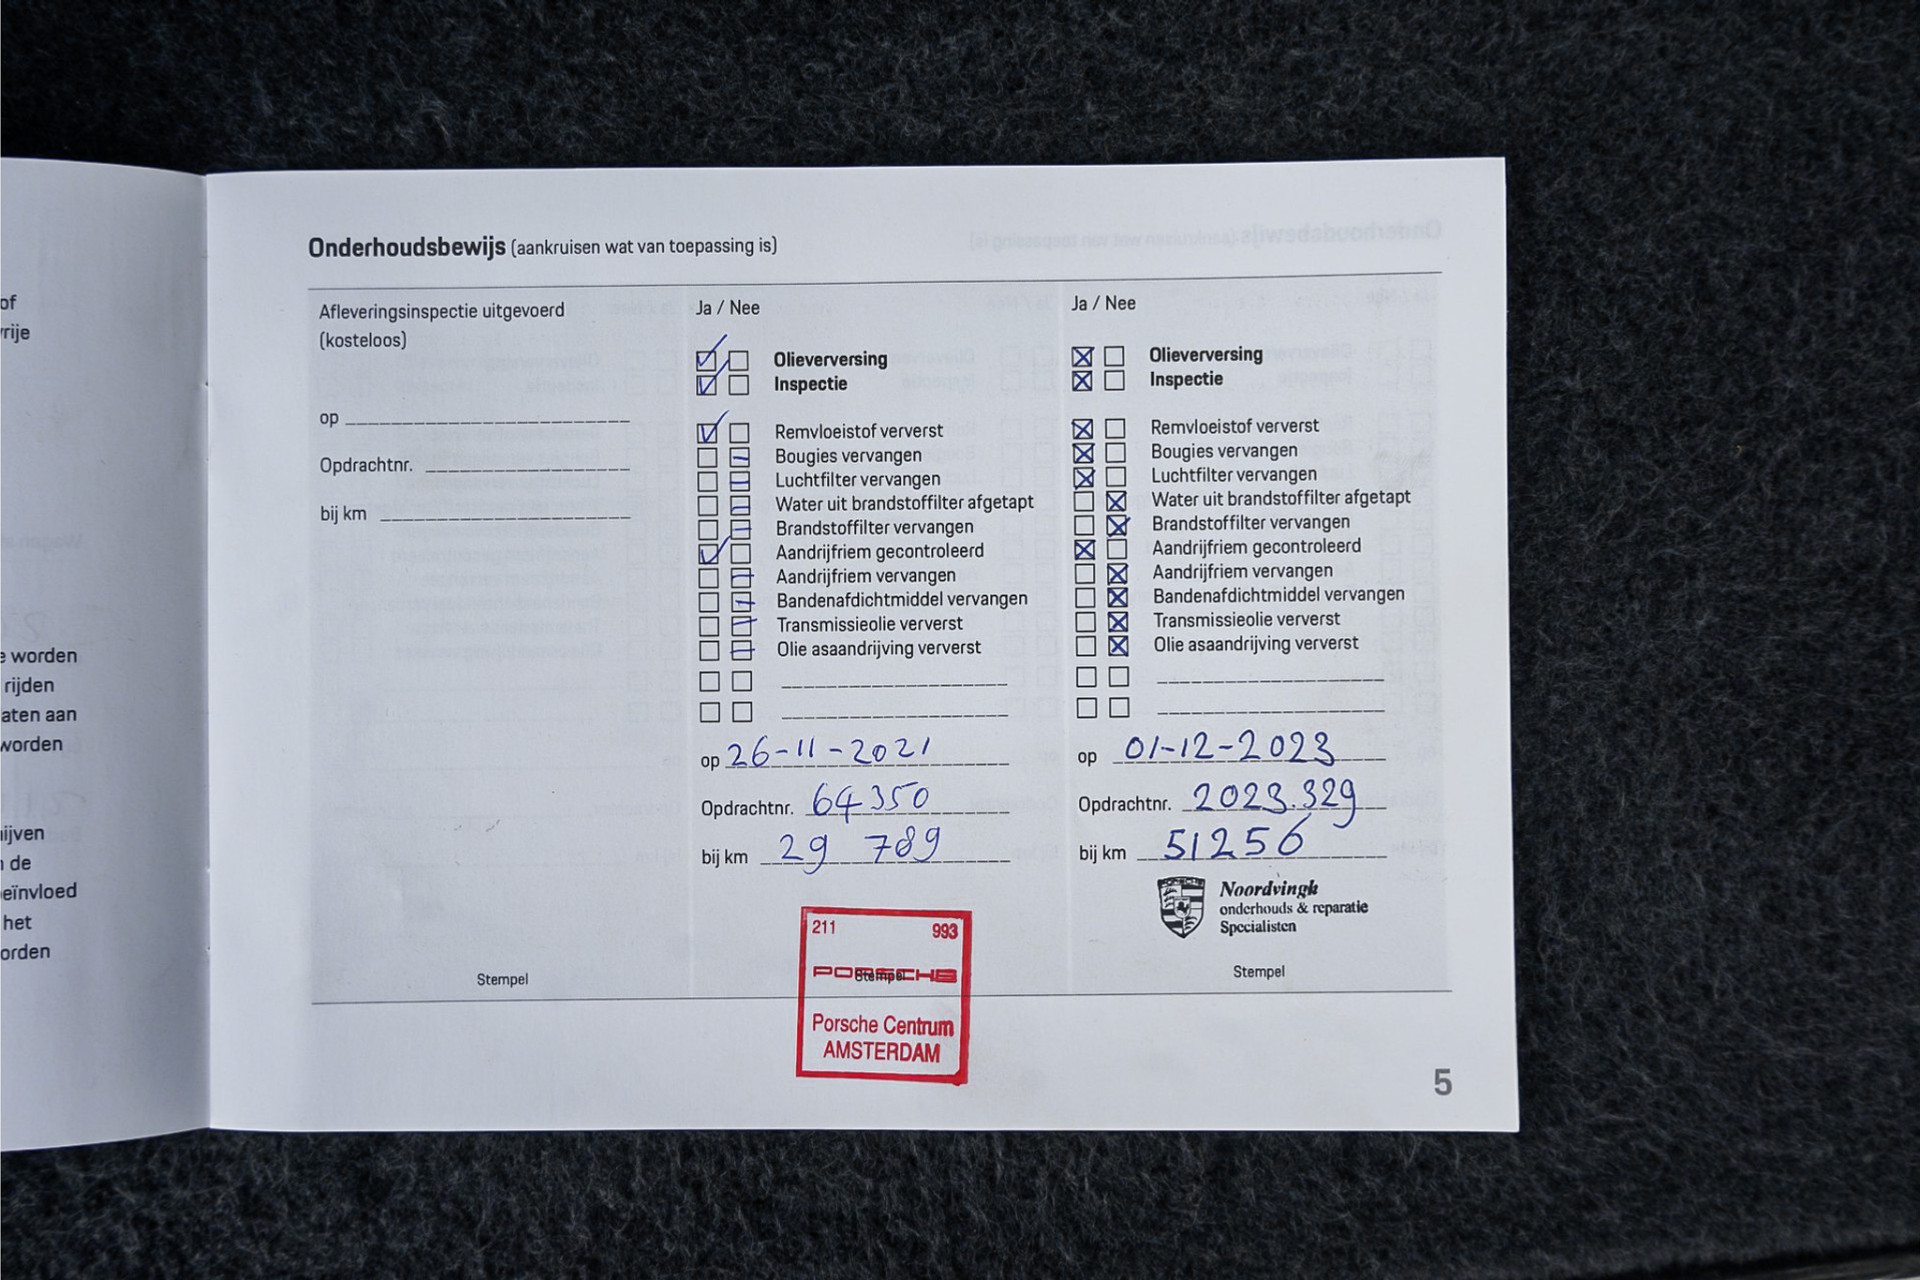 of
rije
e worden
rijden
aten aan
worden
ijven
de
eïnvloed
het
orden
Onderhoudsbewijs (aankruisen wat van toepassing is)
Afleveringsinspectie uitgevoerd
(kosteloos)
op
Opdrachtnr.
bij km
Stempel
Ja / Nee
Olieverversing
Inspectie
Remvloeistof ververst
Bougies vervangen
Luchtfilter vervangen
Water uit brandstoffilter afgetapt
Brandstoffilter vervangen
Aandrijfriem gecontroleerd
Aandrijfriem vervangen
Bandenafdichtmiddel vervangen
Transmissieolie ververst
Olie asaandrijving ververst
op 26-11-2021
Opdrachtnr. 64350
bij km 29 789
211 993
PORSCHE
Stempel
Porsche Centrum
AMSTERDAM
Ja / Nee
Olieverversing
Inspectie
Remvloeistof ververst
Bougies vervangen
Luchtfilter vervangen
Water uit brandstoffilter afgetapt
Brandstoffilter vervangen
Aandrijfriem gecontroleerd
Aandrijfriem vervangen
Bandenafdichtmiddel vervangen
Transmissieolie ververst
Olie asaandrijving ververst
op 01-12-2023
Opdrachtnr. 2023.329
bij km 51256
PORSCHE
Noordvingh
onderhouds & reparatie
Specialisten
Stempel
5